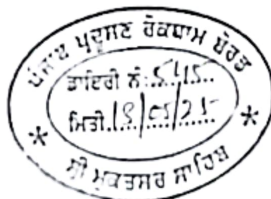 ਪੰਜਾਬ ਪ੍ਰਦੂਸ਼ਣ ਰੋਕਥਾਮ ਬੋਰਡ
ਡਾਇਰੀ ਨੰ:..545..
ਮਿਤੀ..18/05/25
* ਸ੍ਰੀ ਮੁਕਤਸਰ ਸਾਹਿਬ *